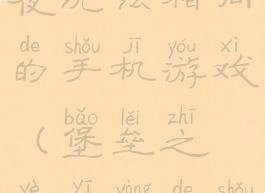 de shǒu jī yóu xì
的手机游戏
bǎo lěi zhī
（堡垒之
yè yī yàng de shǒu